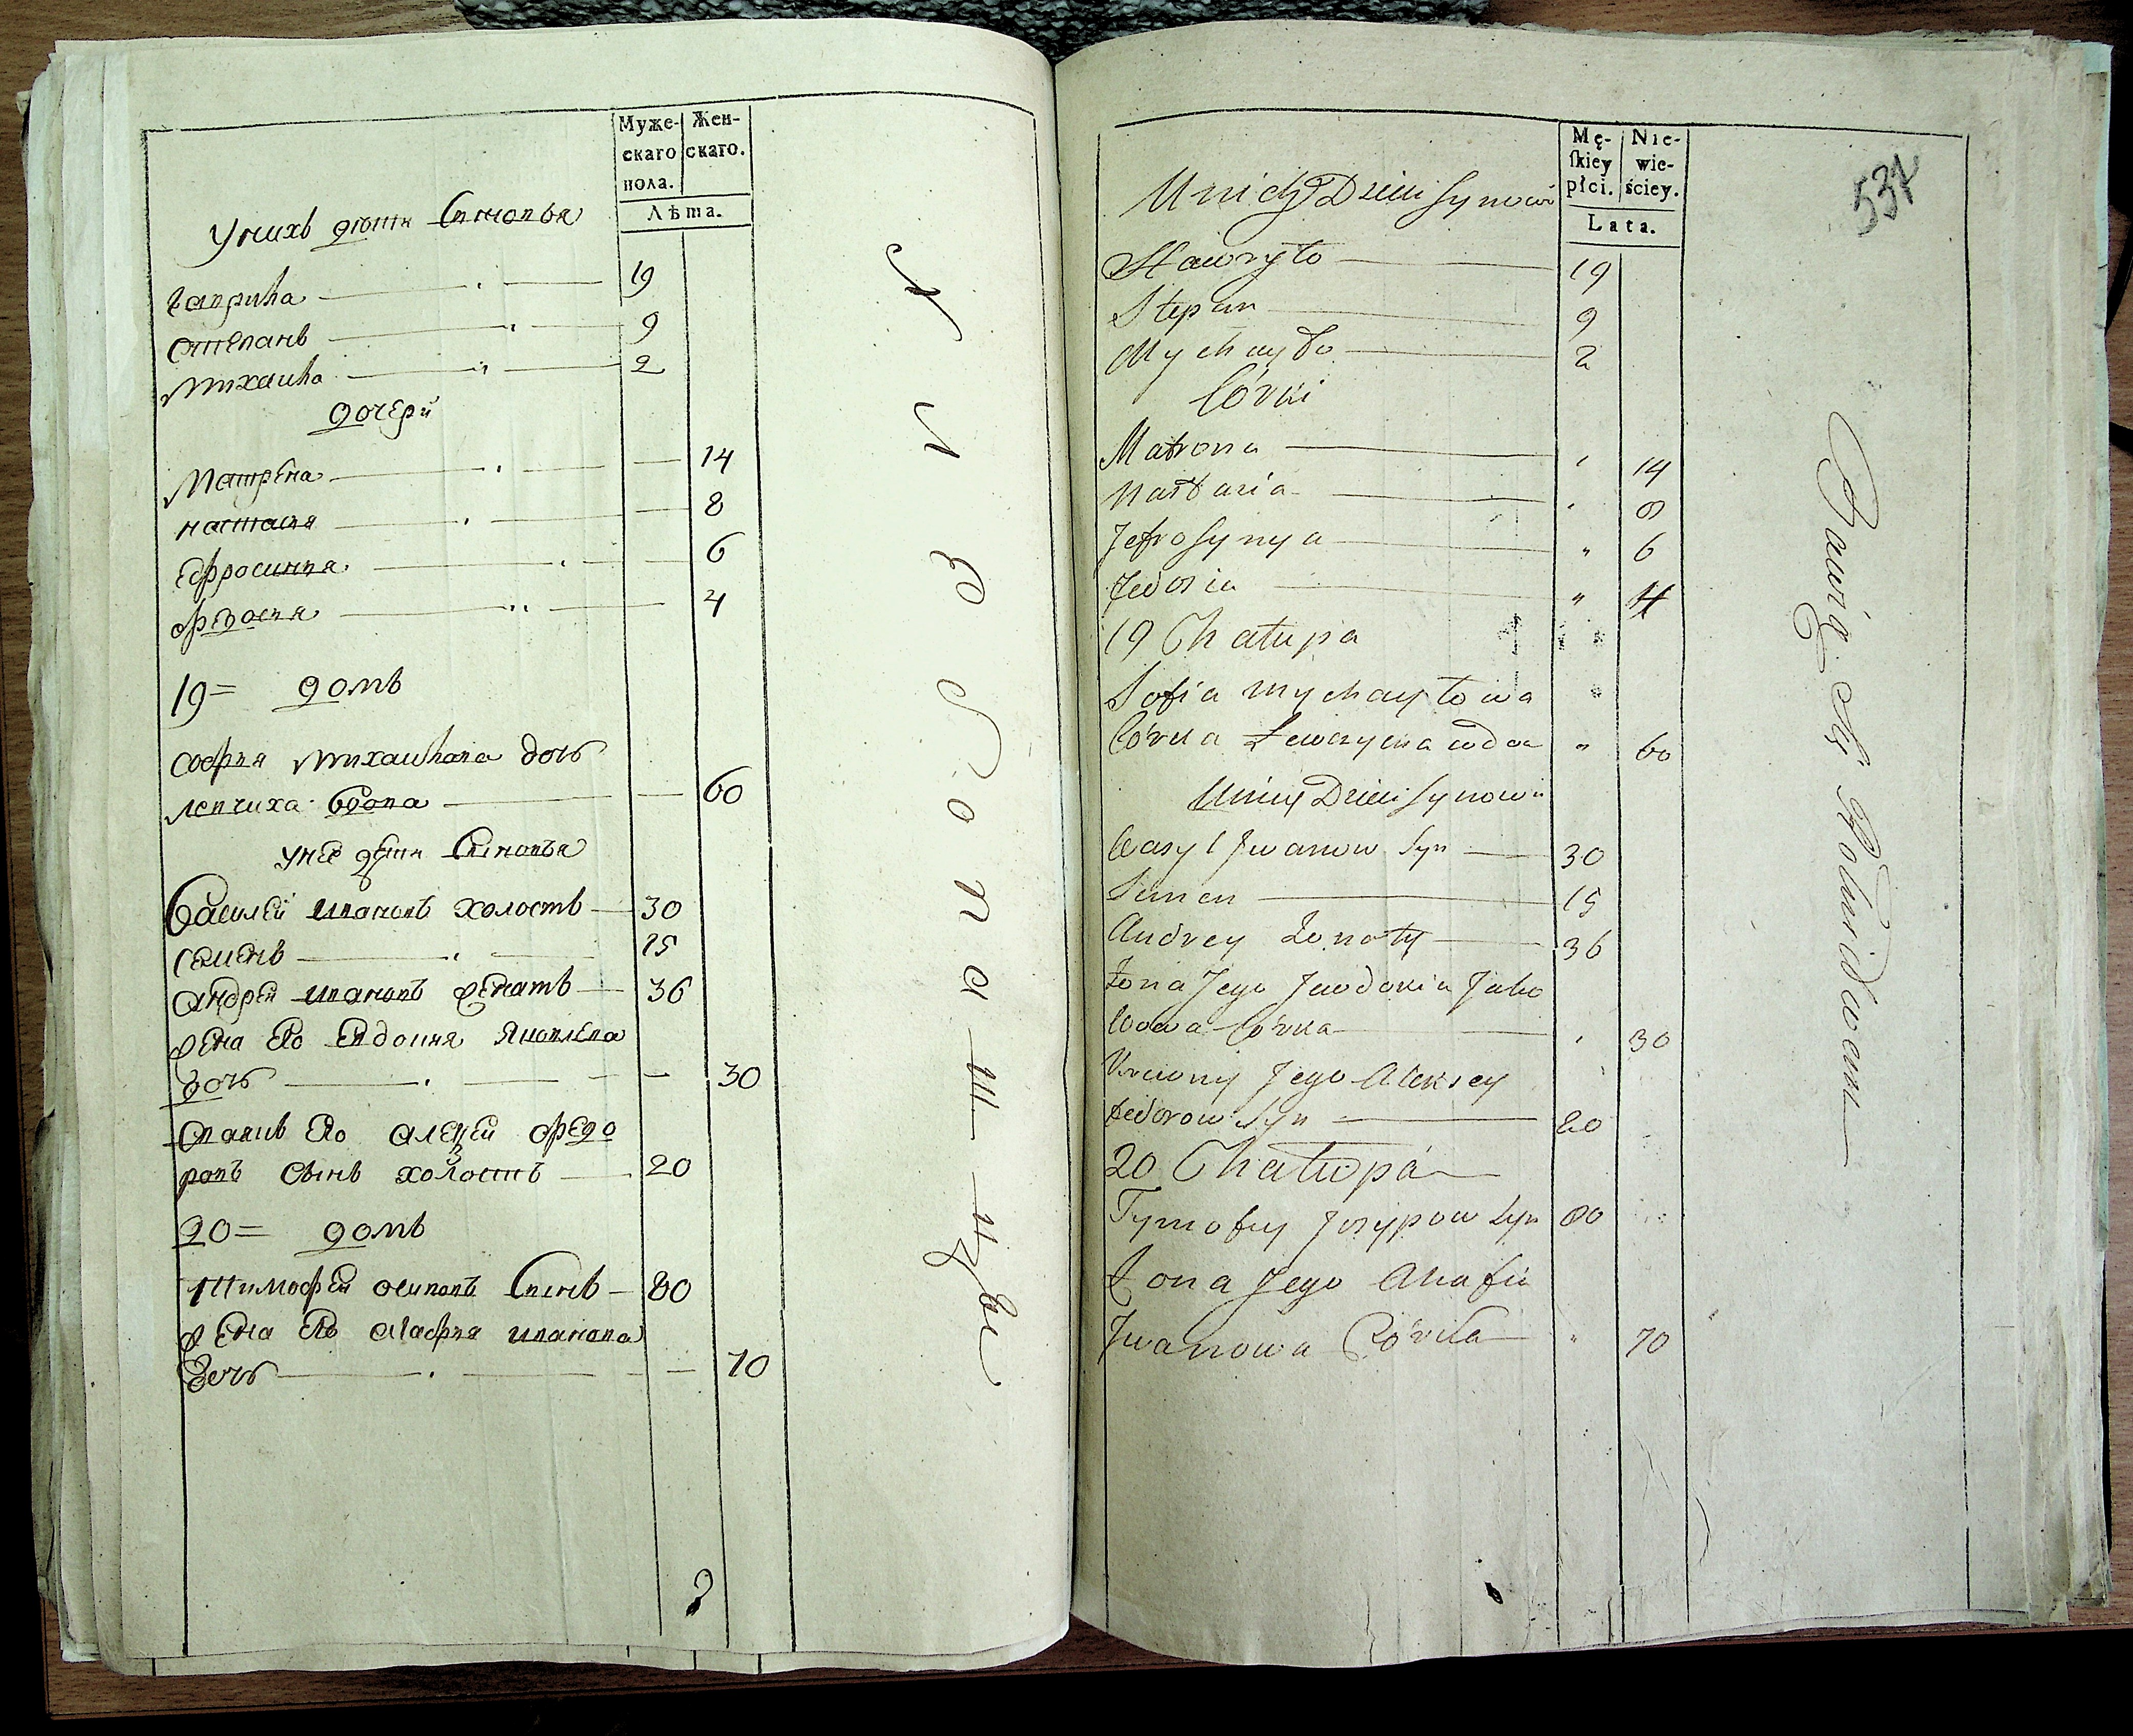 Муже-
скаго
пола.
Жен-
скаго.
Лѣта.
У нихъ дѣти Сыновья
Гаврила 19
Степанъ 9
Михайла 2
дочери
Матрена 14
настася 8
Ефросиния 6
Федосия 4
19 = домъ
София Михайлова дочь
Левчиха вдова 60
У нее дѣти Сыновья
Василей Ивановъ холостъ 30
Семенъ 15
Андрей Ивановъ женатъ 36
жена Его Евдокия Яковлева
дочь 30
Алексей Федо
ровъ сынъ холостъ 20
20 = домъ
Тимофей Осиповъ Сынъ 80
жена Его Агафия Иванова
дочь 70
Mę-
ſkiey
płci.
Nie-
wie-
ściey.
Lata.
537
U nich Dzieci Synowi
Hawryło 19
Stepan 9
Mychayło 2
Córki
Matrona 14
Nastazia 8
Jefrosynya 6
Fedosia 4
19 Chałupa
Sofia Mychayłowa
Córka Lewczycha wdowa 60
U niey Dzieci Synowi
Wasyl Jwanow Syn 30
Semen 15
Andrey Żonaty 36
Żona Jego Jewdokia Jako
wowa Córka 30
Krewny Jego Aleksey
Fedorow Syn 20
20 Chałupa
Tymofey Josypow Syn 80
Żona Jego Ahafia
Jwanowa Córka 70